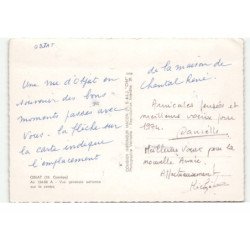 OBJAT
Une vue d'Objat en
souvenir des bons
moments passés avec
vous. La flèche sur
la carte indique
l'emplacement
de la maison de
Chantal René.
Amicales pensées et
meilleurs vœux pour
1974.
Danielle
Meilleurs Vœux pour la
nouvelle Année.
Affectueusement
OBJAT (la Corrèze)
Vue générale aérienne
sur le centre